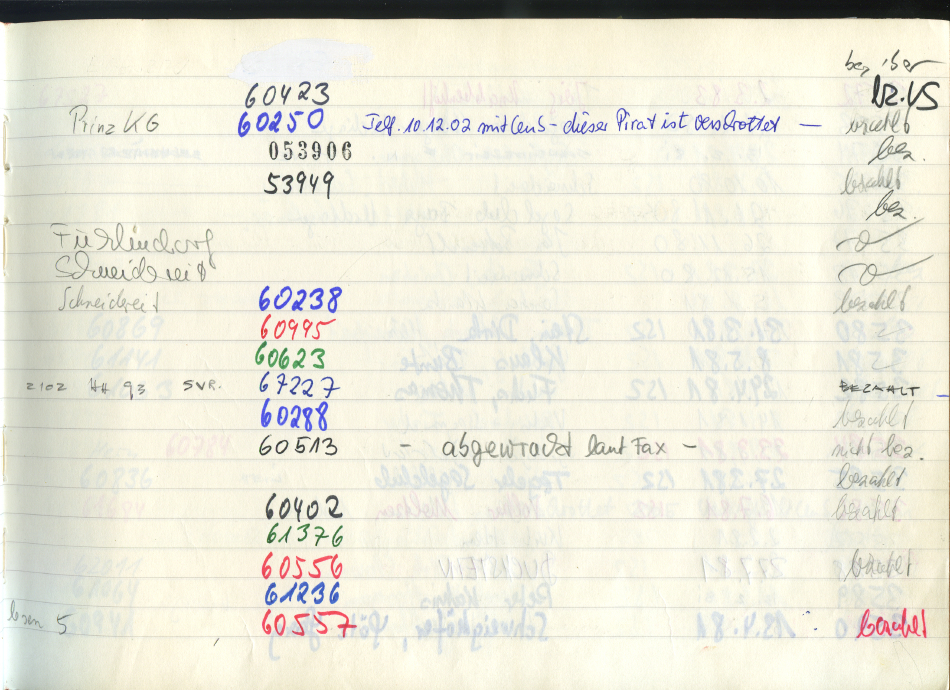 60423
Nr. VS
Prinz KG 60250 Telf. 10.12.02 mit - dieser Pirat ist verschrottet — bezahlt
053906 bez.
53949 bezahlt
bez.
Schneidereit
Schneidereit 60238 bezahlt
60995
60623
2102 HH 93 SVR. 67227 BEZAHLT
60288 bezahlt
60513 - abgewrackt laut Fax - nicht bez.
bezahlt
60402 bezahlt
61376
60556 bezahlt
61236
5 60557 bezahlt